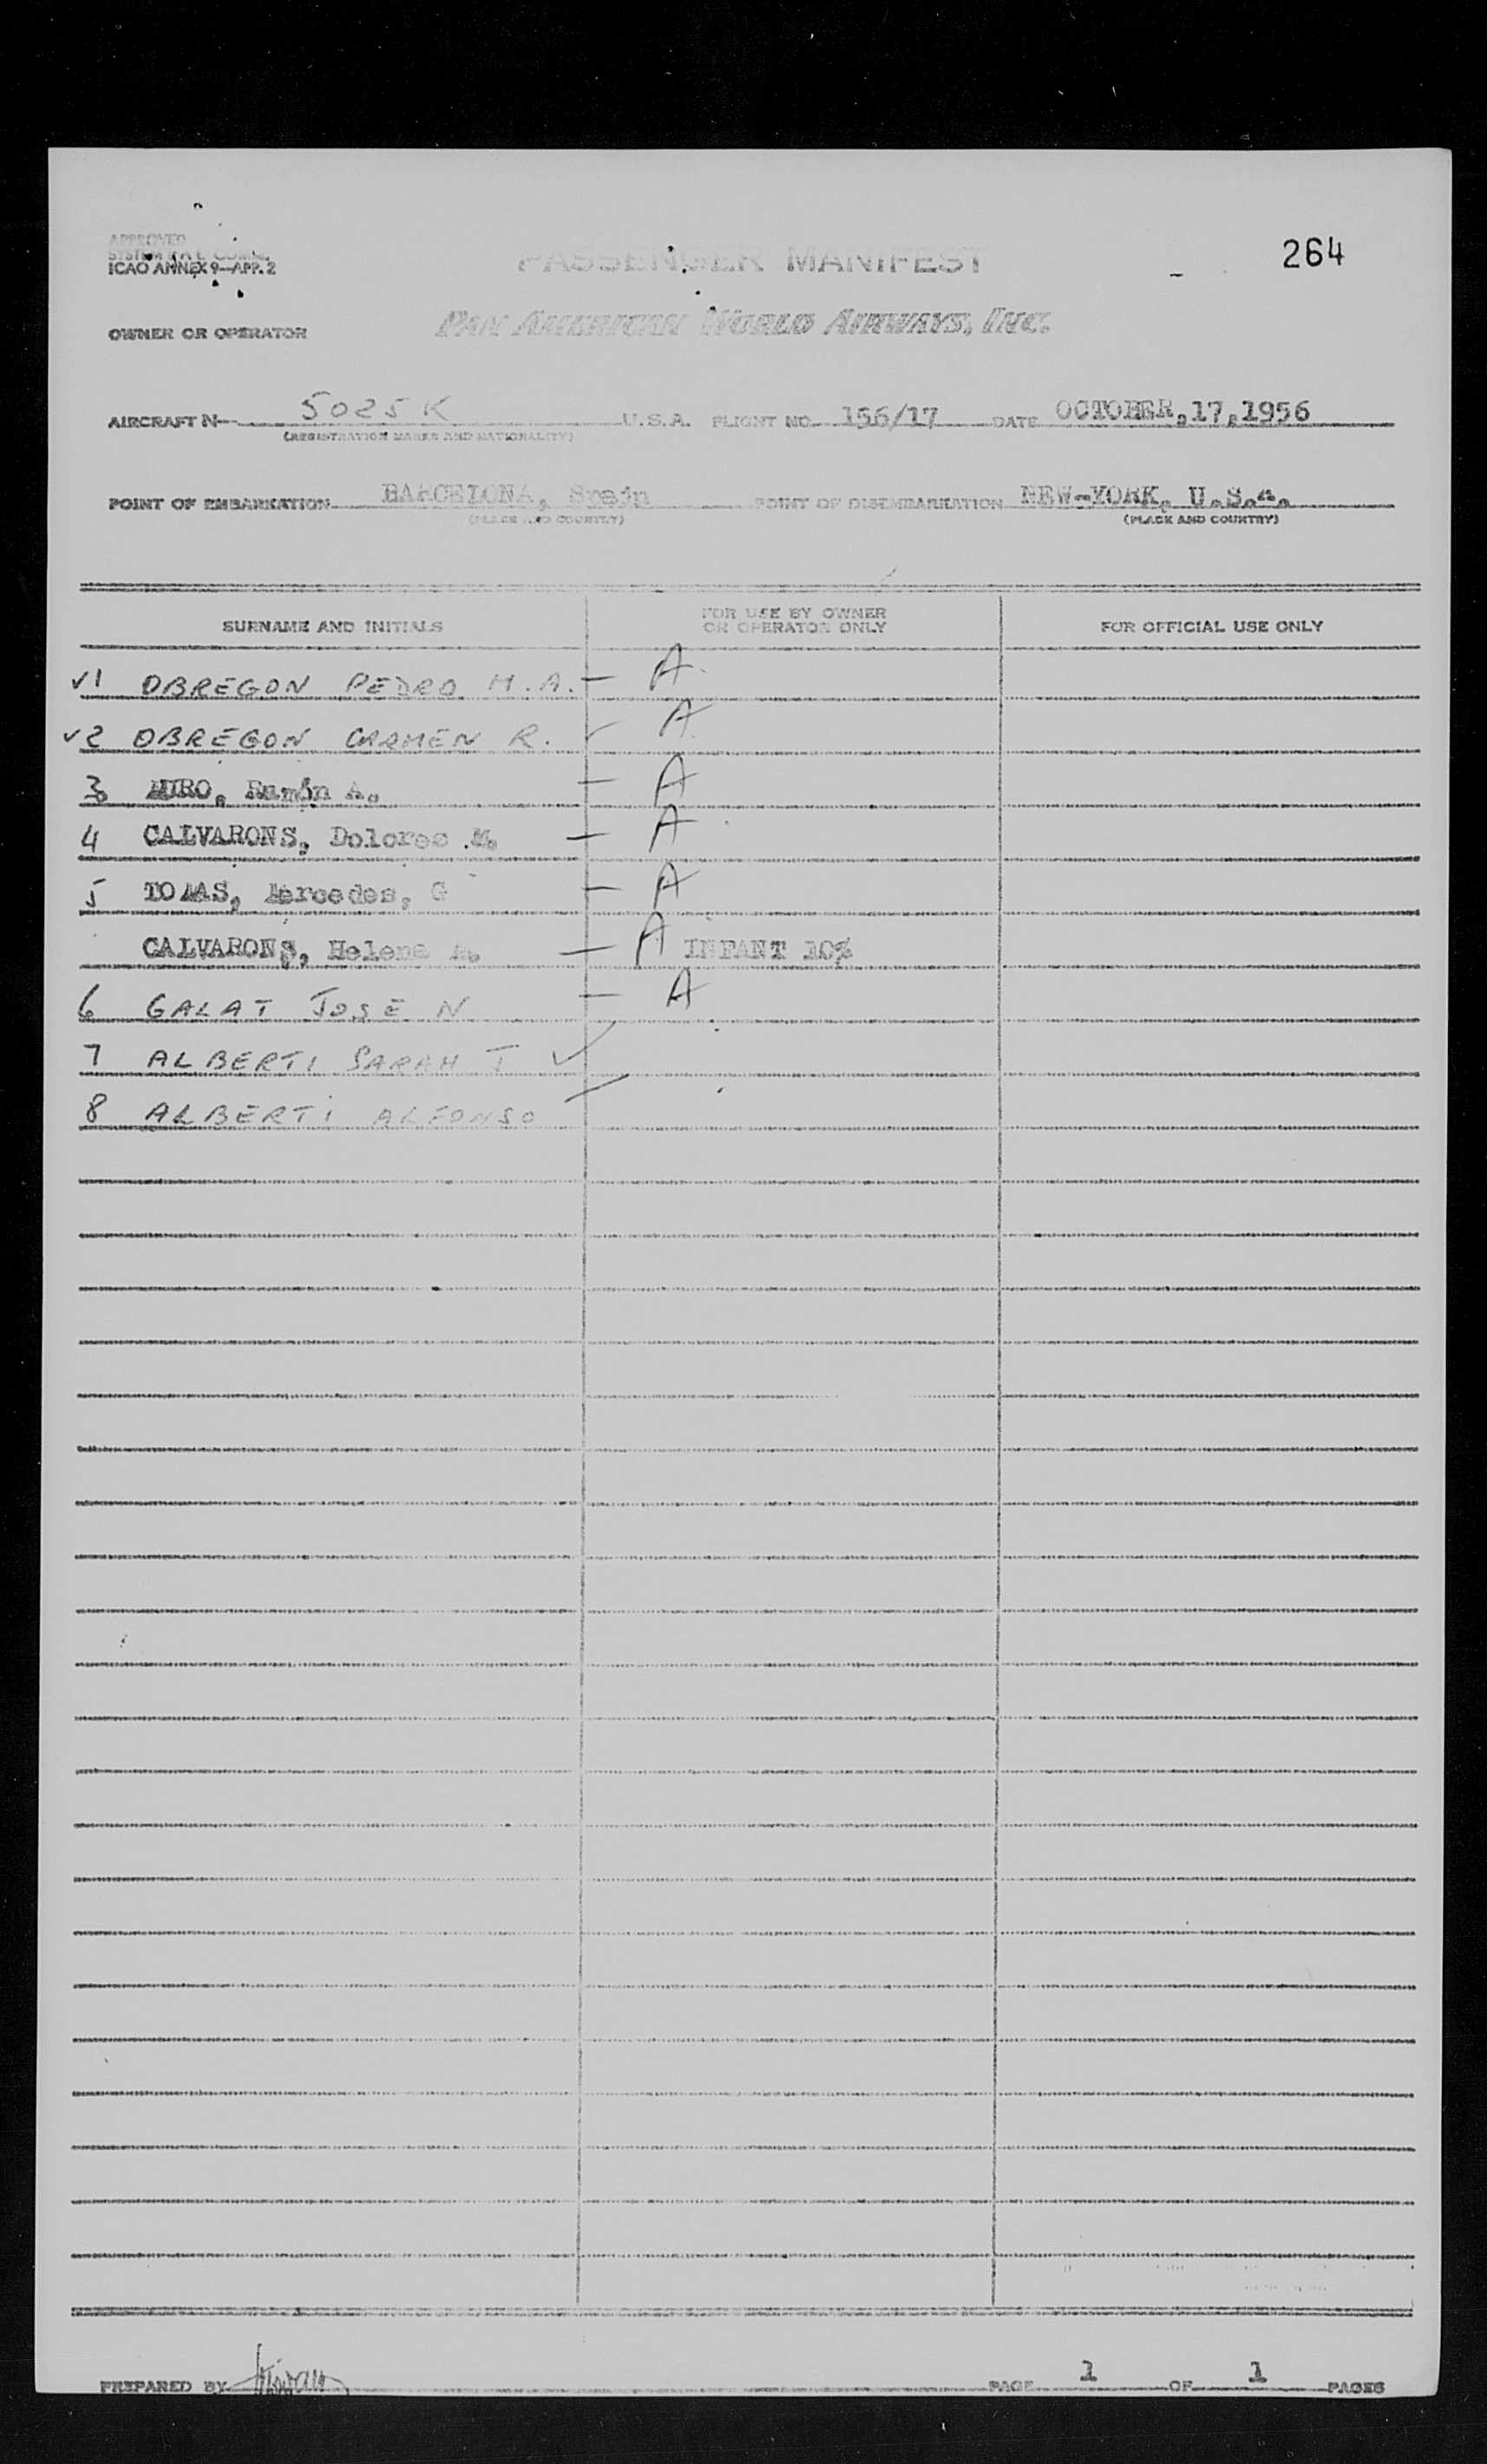 APPROVED
ICAO ANNEX 9—APP. 2
PASSENGER MANIFEST
264
OWNER OR OPERATOR
PAN AMERICAN WORLD AIRWAYS, INC.
AIRCRAFT N— 5025K U.S.A. FLIGHT NO. 156/17 DATE OCTOBER,17,1956
(REGISTRATION MARKS AND NATIONALITY)
POINT OF EMBARKATION BARCELONA, Spain POINT OF DISEMBARKATION NEW-YORK, U.S.A.
(PLACE AND COUNTRY) (PLACE AND COUNTRY)
SURNAME AND INITIALS FOR USE BY OWNER OR OPERATOR ONLY FOR OFFICIAL USE ONLY
✓1 OBREGON PEDRO M.A. — A
✓2 OBREGON CARMEN R. ✓ A
3 MIRO, Ramón A. — A
4 CALVARONS, Dolores M. — A
5 TOMAS, Mercedes, G — A
CALVARONS, Helena M. — A INFANT 10%
6 GALAT JOSE N — A
7 ALBERTI SARAH T ✓
8 ALBERTI ALFONSO
PREPARED BY PAGE 1 OF 1 PAGES